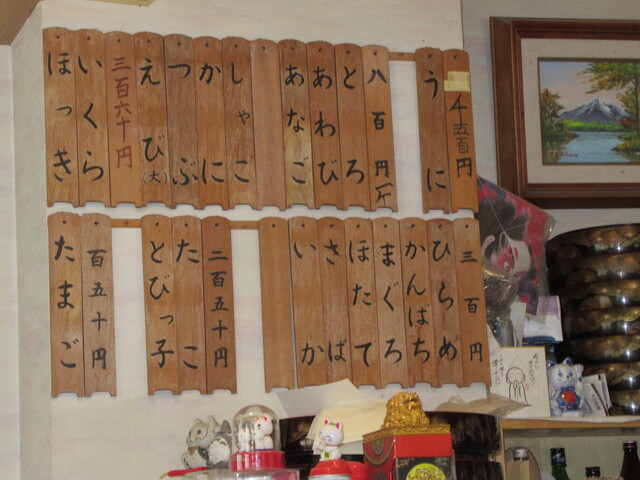 千五百円
うに
八百円
とろ
あわび
あなご
しゃこ
かに
つぶ
えび(大)
三百六十円
いくら
ほっき
三百円
ひらめ
かんぱち
まぐろ
ほたて
さば
いか
二百五十円
たこ
とびっ子
百五十円
たまご